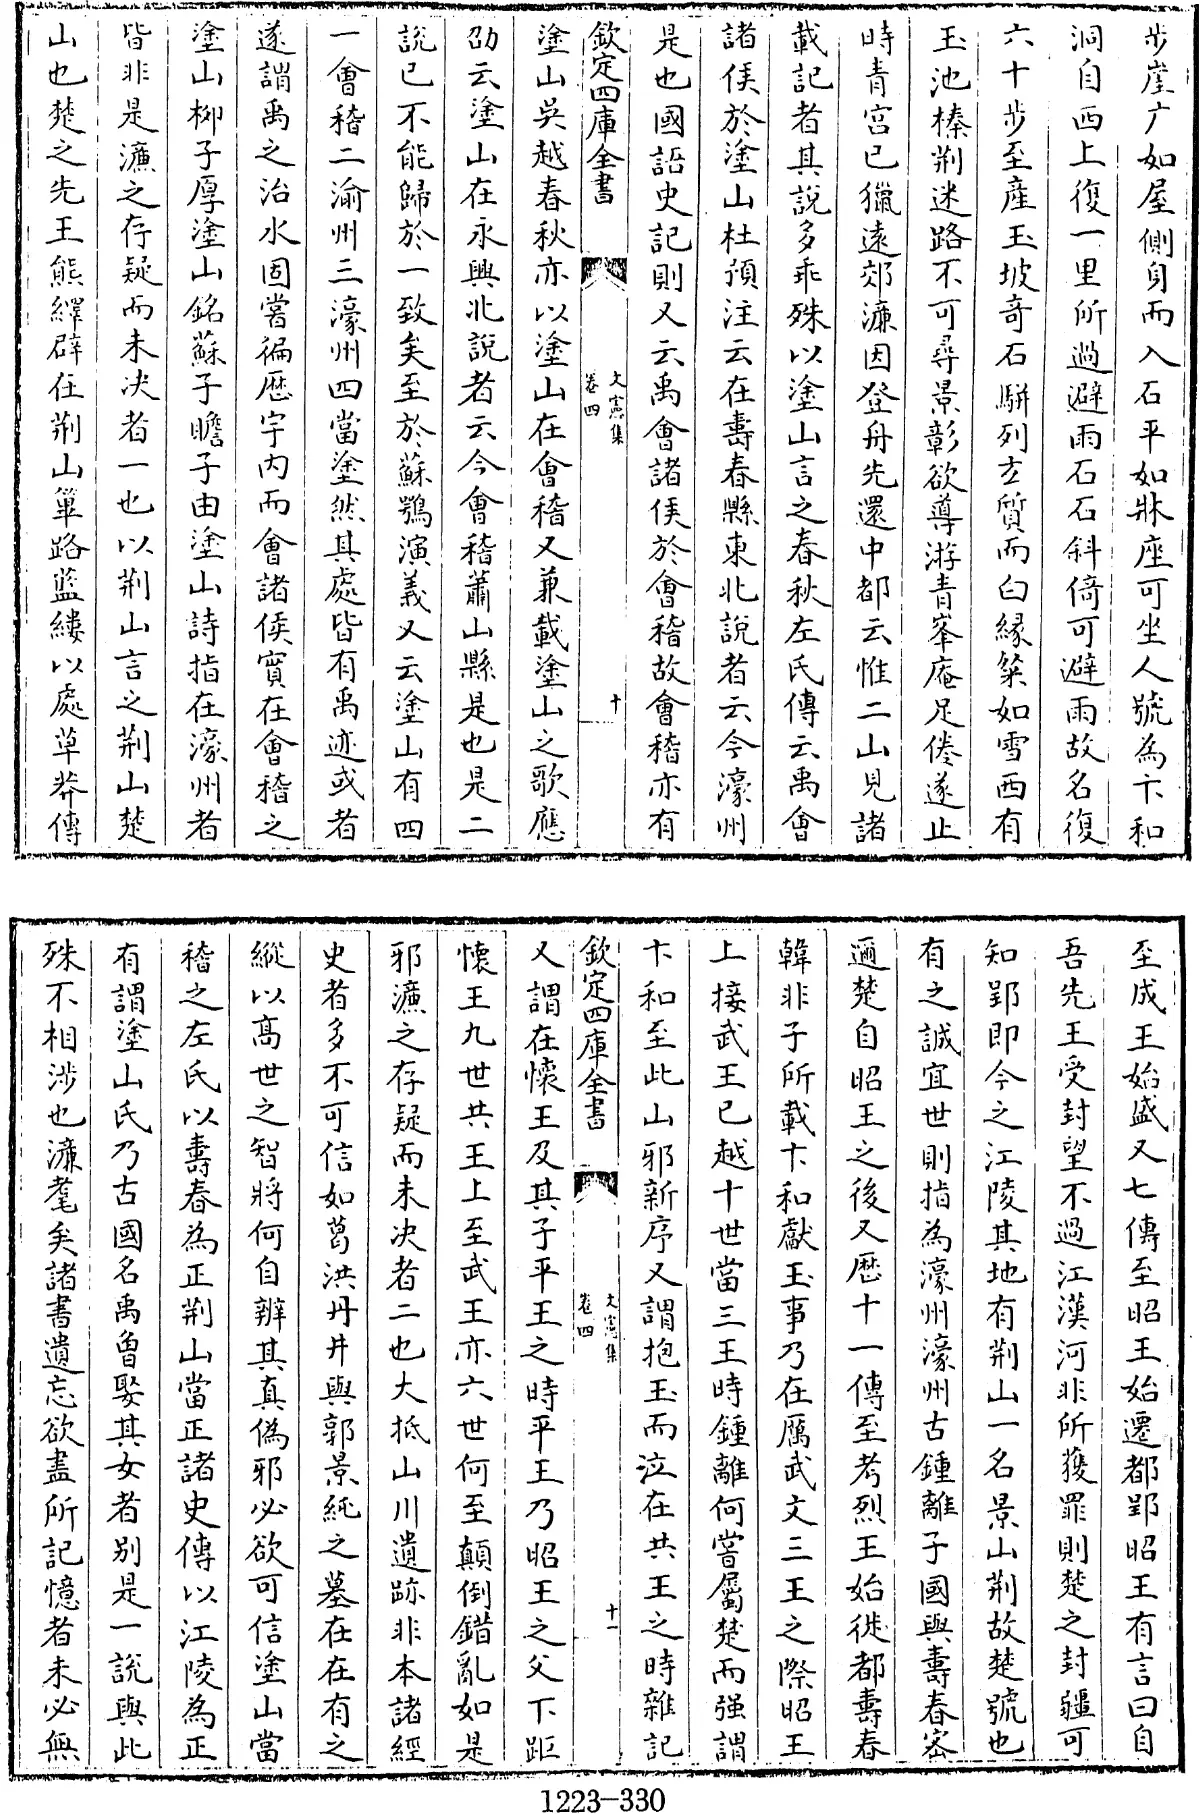 步崖广如屋側身而入石平如牀座可坐人號為卞和
洞自西上復一里所過避雨石石斜倚可避雨故名復
六十步至産玉坡竒石駢列玄質而白緣粲如雪西有
玉池榛荆迷路不可尋景彰欲導游青峯庵足倦遂止
時青宫已獵遠郊濂因登舟先還中都云惟二山見諸
載記者其說多乖殊以塗山言之春秋左氏傳云禹會
諸侯於塗山杜預注云在壽春縣東北說者云今濠州
是也國語史記則又云禹會諸侯於會稽故會稽亦有
欽定四庫全書
文憲集
卷四
十
塗山吳越春秋亦以塗山在會稽又兼載塗山之歌應
劭云塗山在永興北說者云今會稽蕭山縣是也是二
說已不能歸於一致矣至於蘇鶚演義又云塗山有四
一會稽二渝州三濠州四當塗然其處皆有禹迹或者
遂謂禹之治水固嘗徧歷宇内而會諸侯實在會稽之
塗山柳子厚塗山銘蘇子瞻子由塗山詩指在濠州者
皆非是濂之存疑而未决者一也以荆山言之荆山楚
山也楚之先王熊繹辟在荆山篳路藍縷以處草莽傳
至成王始盛又七傳至昭王始遷都郢昭王有言曰自
吾先王受封望不過江漢河非所獲罪則楚之封疆可
知郢即今之江陵其地有荆山一名景山荆故楚號也
有之誠宜世則指為濠州濠州古鍾離子國與壽春密
邇楚自昭王之後又歴十一傳至考烈王始徙都壽春
韓非子所載卞和獻玉事乃在厲武文三王之際昭王
上接武王已越十世當三王時鍾離何嘗屬楚而强謂
卞和至此山邪新序又謂抱玉而泣在共王之時雜記
欽定四庫全書
文憲集
卷四
十一
又謂在懷王及其子平王之時平王乃昭王之父下距
懷王九世共王上至武王亦六世何至顛倒錯亂如是
邪濂之存疑而未决者二也大抵山川遺跡非本諸經
史者多不可信如葛洪丹井與郭景純之墓在在有之
縱以高世之智將何自辨其真偽邪必欲可信塗山當
稽之左氏以壽春為正荆山當正諸史傳以江陵為正
有謂塗山氏乃古國名禹曾娶其女者别是一說與此
殊不相涉也濂耄矣諸書遺忘欲盡所記憶者未必無
1223-330